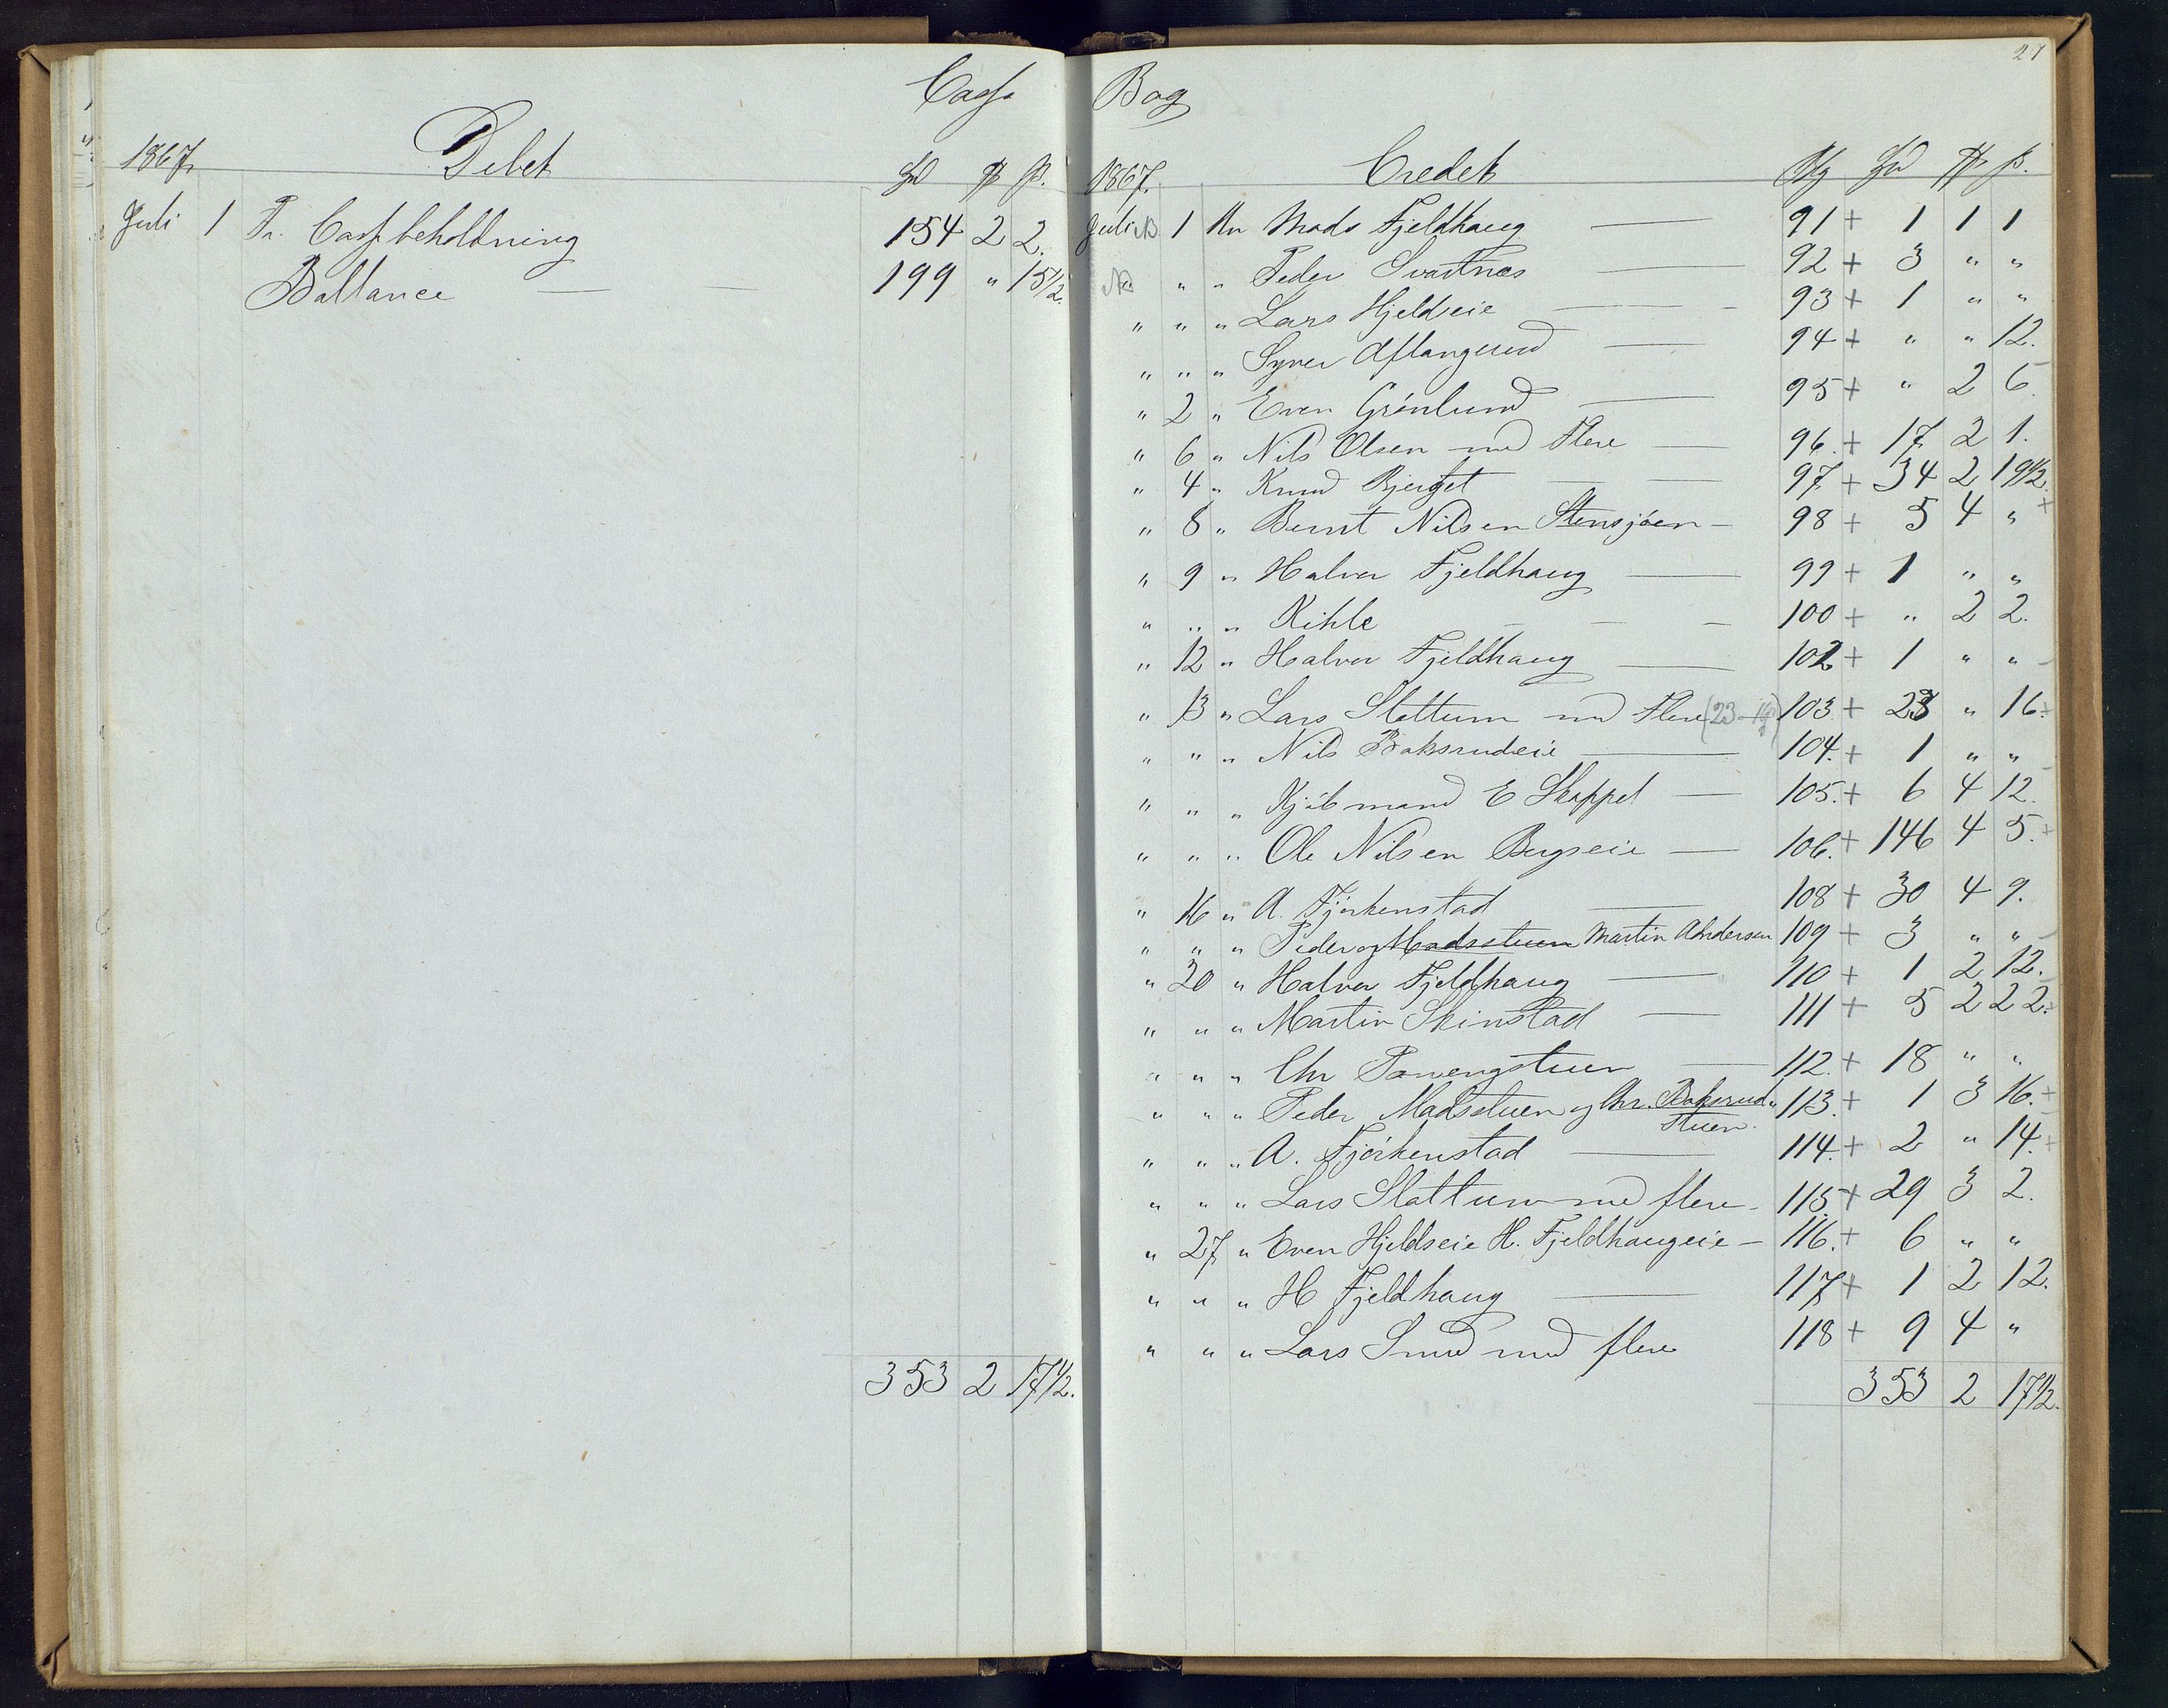 Cassa
1867 Debet Spd ₰ ß.
Juli 1 Pr. Cassabeholdning 154 2 2.
Ballance — — 199 " 15 1/2.
353 2 17 1/2.
27
Bog
1867. Credet Blg Spd ₰ ß.
Juli 1 An Mads Fjeldhaug — 91 + 1 1 1
" " Peder Svartnæs — 92 + 3 " "
" " " Lars Hjeldseie — 93 + 1 " "
" " " Syver Aflangrud — 94 + " " 12.
" 2 " Even Grönlund — 95 + " 2 6.
" 6 " Nils Olsen med Flere — 96. + 17 2 1.
" 4 " Knud Bjerget — 97 + 34 2 19 1/2.
" 8 " Bernt Nilsen Stensjöen — 98 + 5 4 "
" 9 " Halvor Fjeldhaug — 99 + 1 " "
" " " Kihle — — — 100 + " 2 2.
" 12 " Halvor Fjeldhaug — 102 + 1 " "
" 13 " Lars Slattum med Flere (23-19) 103 + 23 " 16.
" " " Nils Baksrudeie — 104. + 1 " "
" " " Kjöbmand E Skappel — 105. + 6 4 12.
" " " Ole Nilsen Bergseie — 106. + 146 4 5.
" 16 " A. Fjörkenstad — 108 + 30 4 9.
" " " Peder og Madsstuen Martin Andersen 109 + 3 " "
" 20 " Halvor Fjeldhaug — 110 + 1 2 12.
" " " Martin Skinstad — 111 + 5 2 22.
" " " Chr Parvengstuen — 112. + 18 " "
" " " Peder Madsstuen og Chr. Baksrud" 113. + 1 3 16.
stuen.
" " " A. Fjörkenstad — 114. + 2 " 14.
" " " Lars Slattum med flere — 115. + 29 3 2.
" 27 " Even Hjeldseie H. Fjeldhaugeie — 116. + 6 " "
" " " H Fjeldhaug — 117 + 1 2 12.
" " " Lars Smed med flere 118 + 9 4 "
353 2 17 1/2.